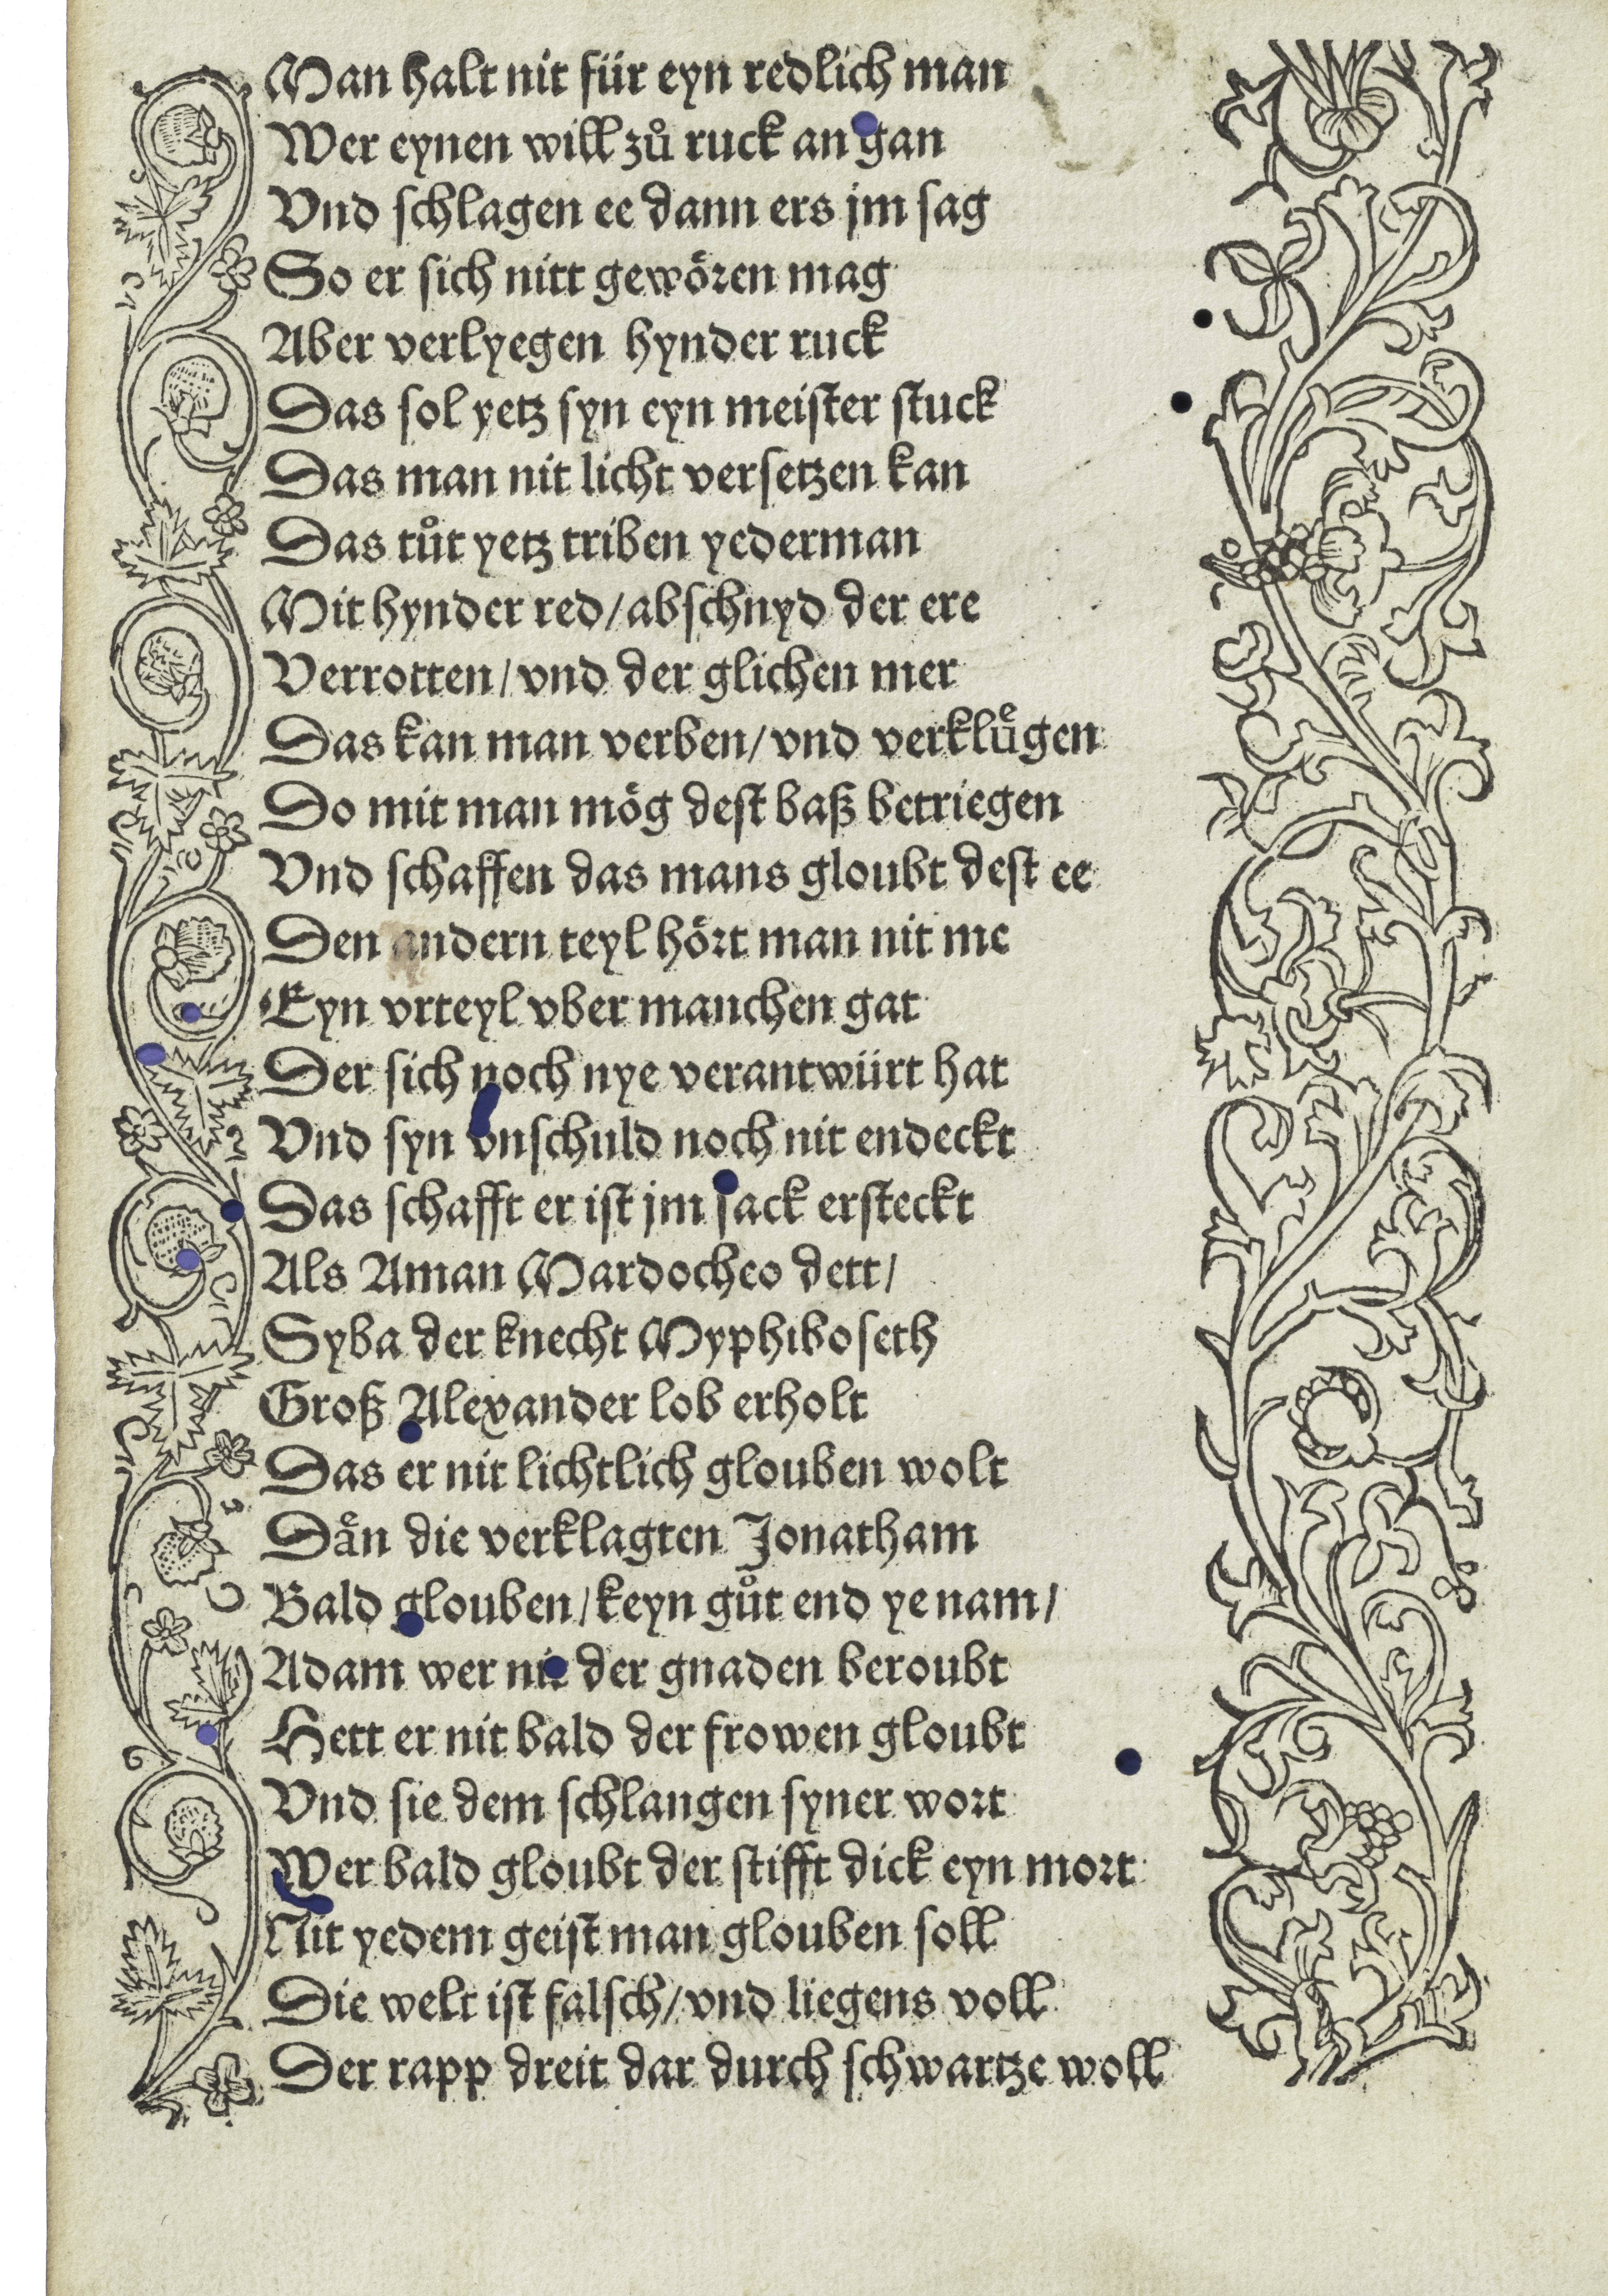 Man halt nit für eyn redlich man
Wer eynen will zů ruck an gan
Vnd schlagen ee dann ers jm sag
So er sich nitt gewören mag
Aber verlyegen hynder ruck
Das sol yetz syn eyn meister stuck
Das man nit licht versetzen kan
Das tůt yetz triben yederman
Mit hynder red/abschnyd der ere
Verrotten/vnd der glichen mer
Das kan man verben/vnd verklůͤgen
Do mit man mög dest baß betriegen
Vnd schaffen das mans gloubt dest ee
Den andern teyl hört man nit me
Eyn vrteyl vber manchen gat
Der sich noch nye verantwürt hat
Vnd syn vnschuld noch nit endeckt
Das schafft er ist jm sack ersteckt
Als Aman Mardocheo dett/
Syba der knecht Myphiboseth
Groß Alexander lob erholt
Das er nit lichtlich glouben wolt
Dän die verklagten Jonatham
Bald glouben/keyn gůt end ye nam/
Adam wer nit der gnaden beroubt
Hett er nit bald der frowen gloubt
Vnd sie dem schlangen syner wort
Wer bald gloubt der stifft dick eyn mort
Nit yedem geist man glouben soll
Die welt ist falsch/vnd liegens voll
Der rapp dreit dar durch schwartze woll